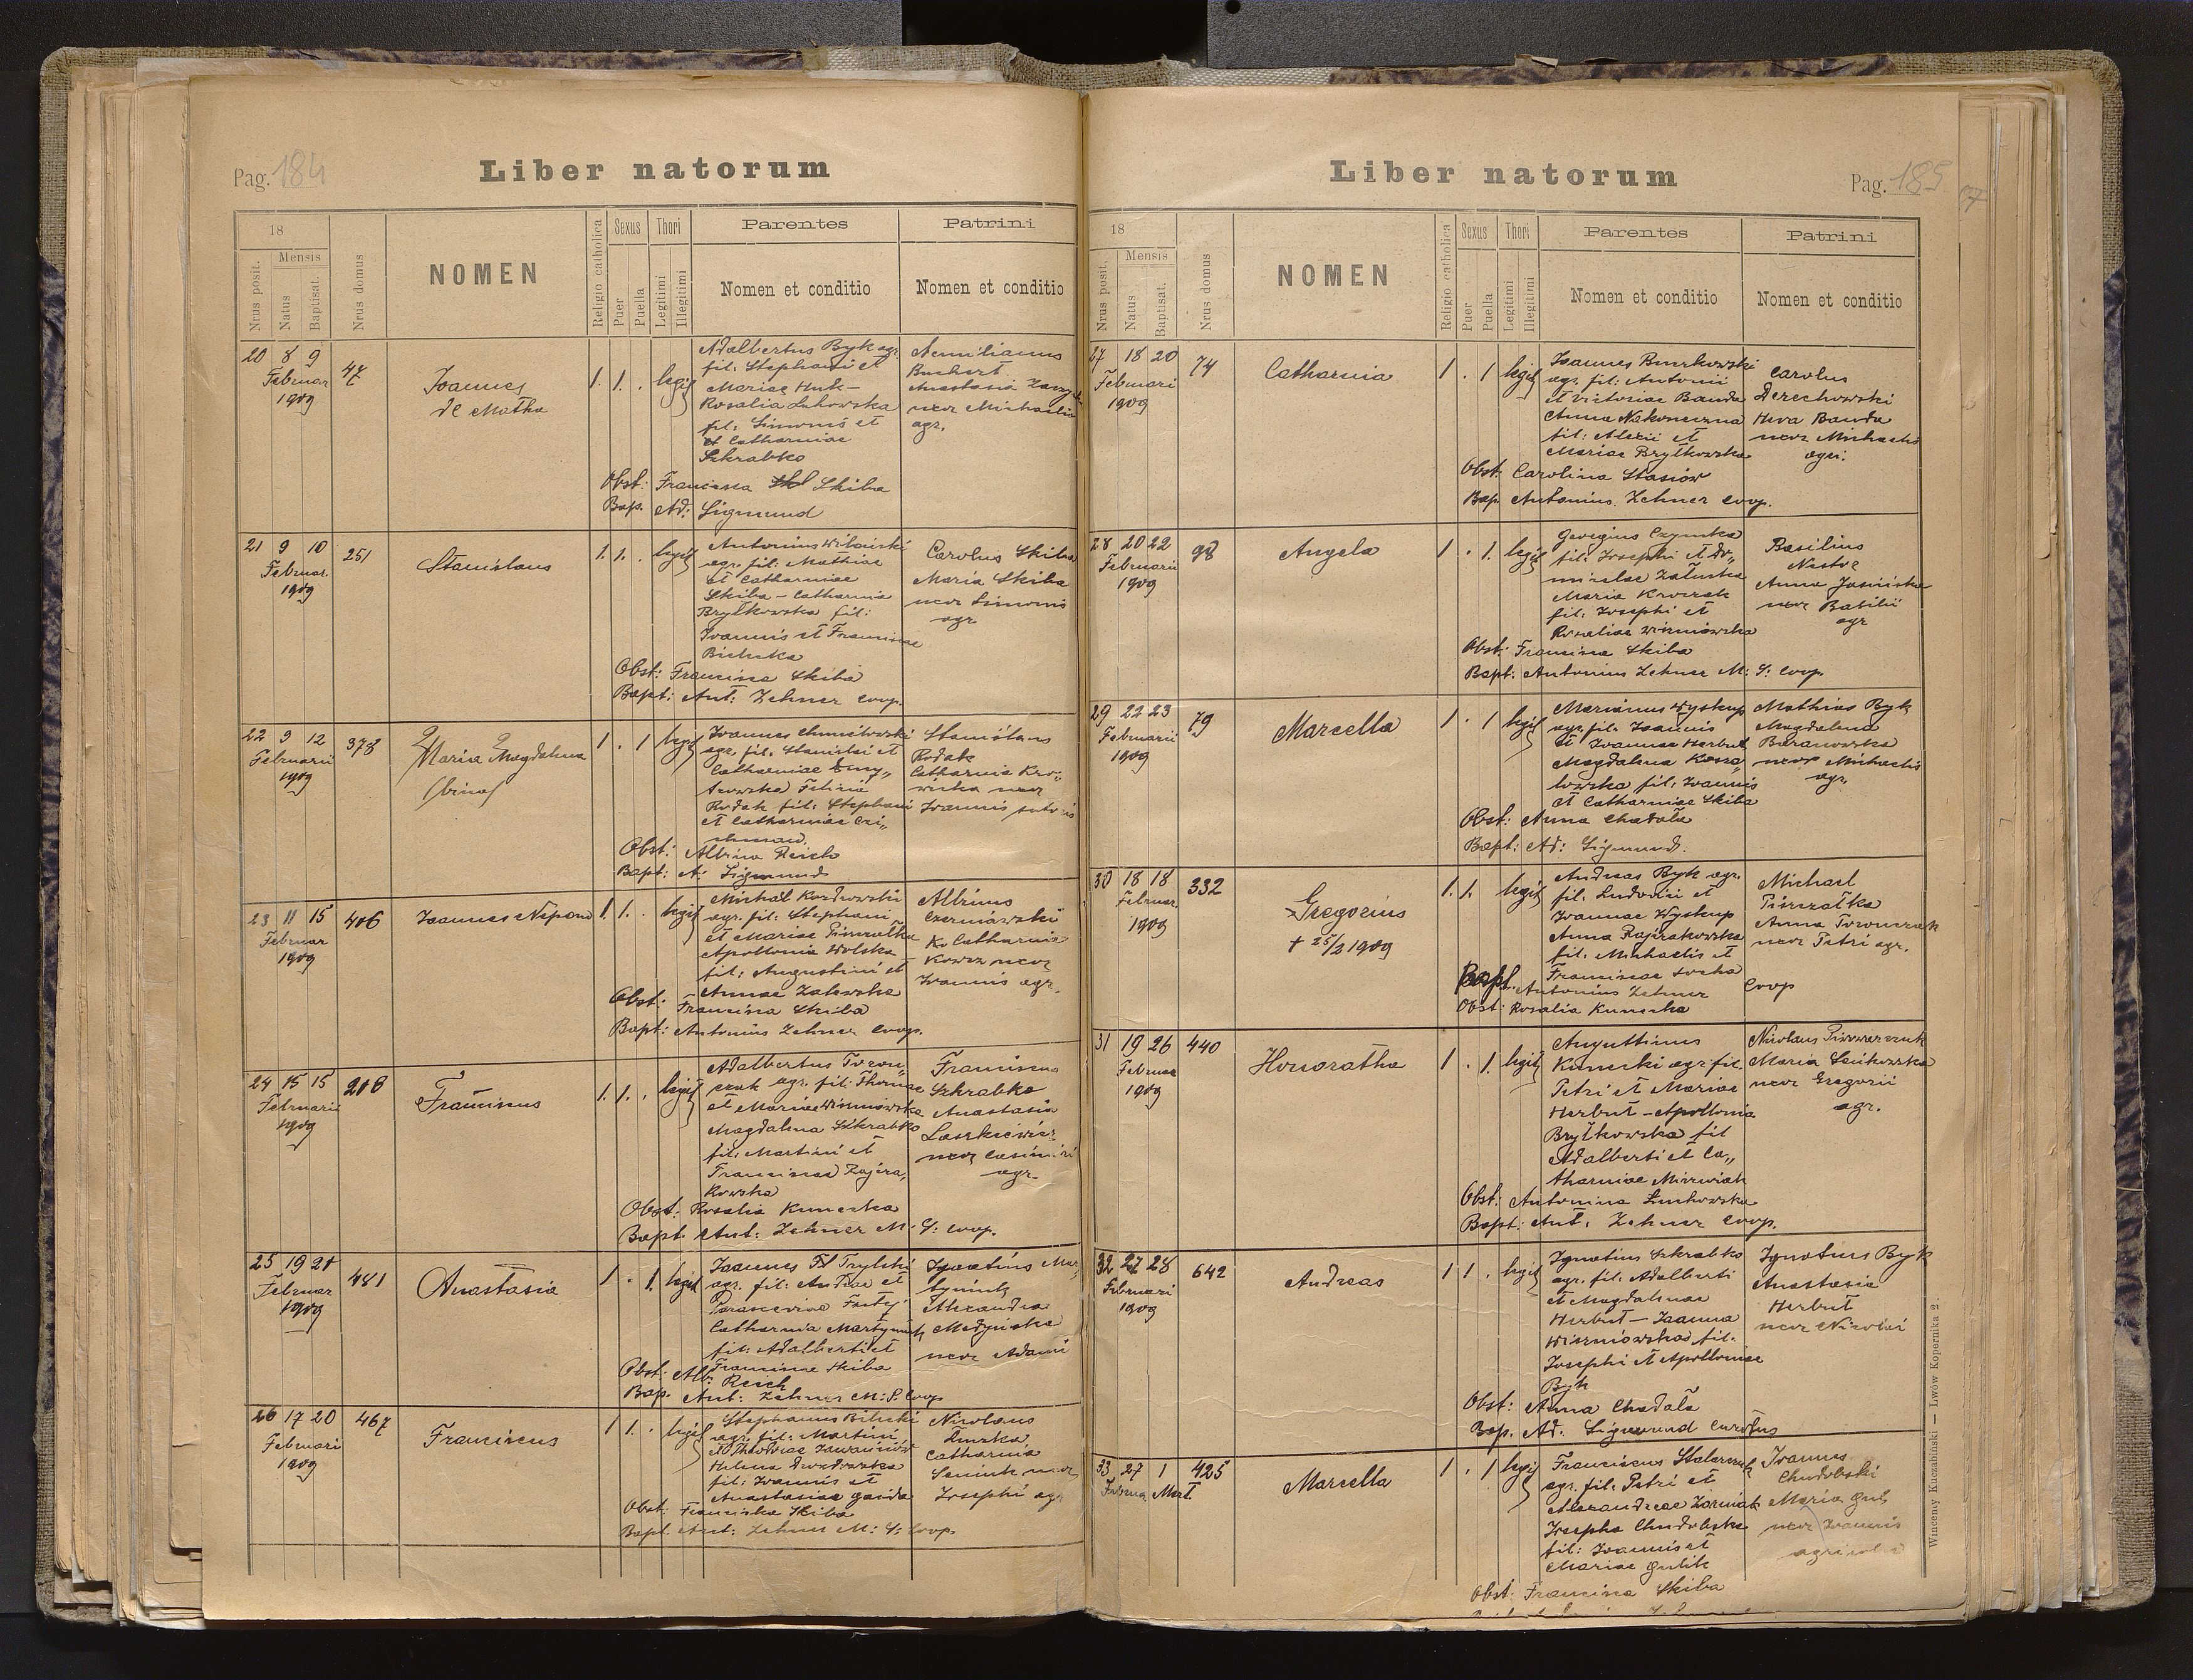 Pag. 184
Liber natorum
18
Mensis
Nrus posit.
Natus
Baptisat.
Nrus domus
NOMEN
Religio catholica
Sexus
Puer
Puella
Thori
Legitimi
Illegitimi
Parentes
Nomen et conditio
Patrini
Nomen et conditio
20 8 9
Februar
1909
47
Joannes
de Matha
1. 1. . legit
Adalbertus Byk agr.
fil. Stephani et
Mariae Huk –
Rosalia Luhowska
fil: Simonis et
et Catharniae
Szkrabko
Aemilianus
Buchert
Anastasia
uxor Michaelis
agr.
Obst: Francisca Skiba
Bap. Ad: Sigmund
21 9 10
Februar.
1909
251
Stanislaus
1. 1. . legit
Antonius Witoński
agr. fil: Mathiae
et Catharniae
Skiba – Catharnia
Brytkowska fil:
Joannis et Franciscae
Bielecka
Carolus Skiba
Maria Skiba
uxor Simonis
agr
Obst: Francisca Skiba
Bapt: Ant: Zehner Coop.
22 9 12
Februarii
1909
378
Maria Magdalena
(bina)
1 . 1 legit
Joannes Chmielowski
agr. fil. Stanislai et
Catharniae
Felicia
Rodak fil: Stephani
et Catharniae
Stanislaus
Rodak
Catharnia Kro„
wicka uxor
Joannis sutoris
Obst: Albina Reich
Bapt: A: Sigmund
23 11 15
Februar
1909
406
Joannes Nepom
1. 1. . legit
Michal Kozdrowski
agr. fil: Stephani
et Mariae Pieszczatka
Apollonia Wolska
fil: Augustini et
Annae Zalewska
Albinus
Czerniawski
Kv Catharnia
Kowcz uxor
Joannis agr.
Obst: Francisca Skiba
Bapt: Antonius Zehner Coop.
24 15 15
Februarii
1909
208
Franciscus
1. 1. . legit
Adalbertus Toron„
czak agr. fil: Thomae
et Mariae Wiszniowska
Magdalena Szkrabko
fil: Martini et
Franciscae Zajęra„
kowska
Franciscus
Szkrabko
Anastasia
Laszkiewicz
uxor Casimiri
agr.
Obst: Rosalia Kunecka
Bapt. Ant: Zehner M: S: Coop.
25 19 21
Februar
1909
481
Anastasia
1 . 1. legit
Joannes Trylski
agr. fil: Andrae et
Parascevine Futyj
Catharnia Martyniuk
fil: Adalberti et
Franciscae Skiba
Ignatius
Alexandra
Medyńska
uxor Adami
Obst: Alb: Reich
Bap. Ant: Zehner M: S: Coop
26 17 20
Februari
1909
467
Franciscus
1 1. . legit
Stephanus Bilecki
agr. fil: Martini
Helena
fil: Joannis et
Anastasiae Gaida
Nicolaus
Duszka
Catharnia
Semiuk uxor
Josephi agr
Obst: Franciska Skiba
Bapt. Ant: Zehner M: S: Coop
Liber natorum
Pag. 185
18
Mensis
Nrus posit.
Natus
Baptisat.
Nrus domus
NOMEN
Religio catholica
Sexus
Puer
Puella
Thori
Legitimi
Illegitimi
Parentes
Nomen et conditio
Patrini
Nomen et conditio
27 18 20
Februari
1909
74
Catharnia
1 . 1 legit
Joannes Burkowski
agr. fil: Antonii
et Victoriae Banda
Anna Nakoneczna
fil: Alexii et
Mariae Brytkowska
Carolus
Derechowski
Heva Banda
uxor Michaelis
agri.
Obst: Carolina Stasiów
Bap. Antonius Zehner Coop.
28 20 22
Februarii
1909
98
Angela
1 . 1. legit
Georgius
fil: Josephi et Do„
micelae Załuska
Maria Kroczak
fil: Josephi et
Rosaliae Wiszniowska
Basilius
Nestor
Anna Jasińska
uxor Basilii
agr
Obst: Francisca Skiba
Bapt: Antonius Zehner M: S: Coop
29 22 23
Februarii
1909
79
Marcella
1 . 1 legit
Marianus Wyskup
agr. fil. Joannis
et Joannae Herbut
Magdalena
fil. Joannis
et Catharniae Skiba
Mathias Byk
Magdalena
Baranowska
uxor Michaelis
agr.
Obst: Anna Chadała
Bapt: Ad: Sigmund.
30 18 18
Februar
1909
332
Gregorius
† 25/2 1909
1. 1. legit
Andreas Byk agr.
fil. Ludovici et
Joannae Wyskup
Anna Zajęrakowska
fil. Michaelis et
Franciscae Socha
Michael
Piszczatka
Anna Toronczak
uxor Petri agr.
Bapt. Antonius Zehner Coop
Obst: Rosalia Kunecka
31 19 26
Februar
1909
440
Honoratha
1 . 1. legit
Augustinus
Kunecki agr. fil.
Petri et Mariae
Herbut – Apollonia
Brytkowska fil
Adalberti et Ca„
tharniae
Nicolaus Piwowarczuk
Maria
uxor Gregorii
agr.
Obst: Antonina
Bapt: Ant: Zehner Coop.
32 27 28
Februari
1909
642
Andreas
1 1 . legit
Ignatius Szkrabko
agr. fil. Adalberti
et Magdalenae
Herbut – Joanna
Wiszniowska fil.
Josephi et Apolloniae
Byk
Ignatius Byk
Anastasia
Herbut
uxor Nicolai
Obst: Anna Chadała
Bap. Ad. Sigmund curatus
33 27 1
Februa. Mart.
425
Marcella
1 . 1 legit
Franciscus
agr. fil. Petri et
Alexandrae
Josepha Chudobska
fil: Joannis et
Mariae Gulik
Joannes
Chudobski
Maria Gul
uxor Joannis
agricola
Obst: Francisca Skiba
Winceny Kuczabiński — Lwów Kopernika 2.